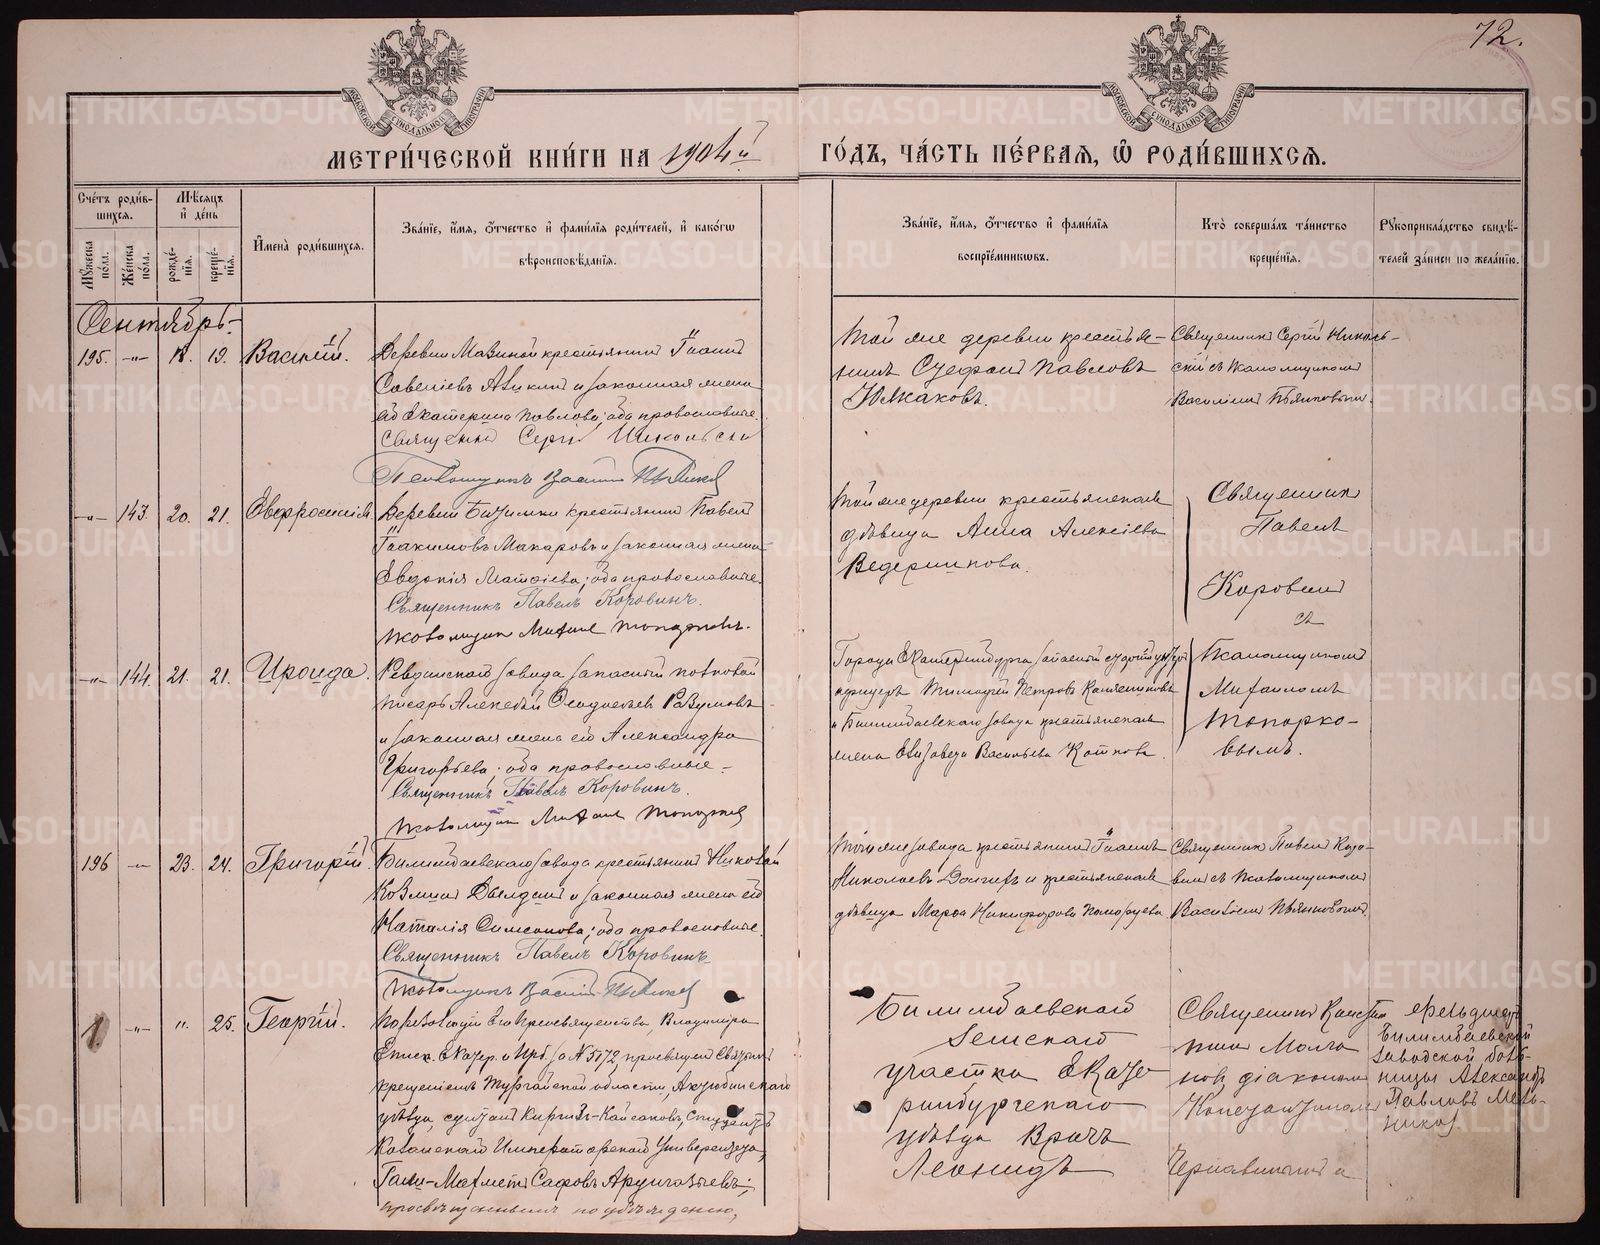 72.
МЕТРИ́ЧЕСКОЙ КНИ́ГИ НА 1904й ГО́ДЪ, ЧА́СТЬ ПЕ́РВАЯ, Ѡ҆ РОДИ́ВШИХСЯ.
Сче́тъ роди́в-
шихся.
Мѣ́сяцъ
и҆ де́нь
Му́жеска по́ла.
Же́нска по́ла.
рожде́-
нїя.
креще́-
нїя.
И҆мена̀ роди́вшихся.
Зва́нїе, и҆́мя, ѻ҆́тчество и҆ фами́лїя роди́телей, и҆ како́гѡ
вѣроисповѣ́данїя.
Зва́нїе, и҆́мя, ѻ҆́тчество и҆ фами́лїя
воспрїе́мниковъ.
Кто̀ соверша́лъ та́инство
креще́нїя.
Рꙋкоприкла́дство свидѣ́-
телей за́писи по жела́нїю.
Сентябрь.
195. -"- 18. 19. Василій.
Деревни Мазиной крестьянинъ Іоаннъ
Савеліевъ и законная жена
его Екатерина Павлова; оба православные.
Священникъ Сергій Никольскій
Псаломщикъ Василій Пьянков
Той же деревни крестья-
нинъ Павловъ
Священникъ Сергій Николь-
скій съ псаломщикомъ
Василіемъ Пьянковымъ.
-"- 143. 20. 21. Евфросинія.
Деревни Битимки крестьянинъ Павелъ
Іоакимовъ Макаровъ и законная жена
Евдокія Матѳіева; оба православные.
Священникъ Павелъ Коровинъ.
Псаломщикъ Михаилъ Топорковъ.
Той же деревни крестьянская
дѣвица Анна Алексіева
Ведерникова.
Священникъ
Павелъ
Коровинъ
съ
-"- 144. 21. 21. Ираида.
Ревдинскаго завода запасный полковой
писарь Алексѣй Ѳеодосіевъ Разумовъ
и законная жена его Александра
Григорьева; оба православные.
Священникъ Павелъ Коровинъ.
Псаломщикъ Михаилъ Топорков
Города Екатеринбурга запасный
Тимоѳей Петровъ
и Билимбаевскаго завода крестьянская
жена Елизавета Васильева
Псаломщикомъ
Михаиломъ
Топорко-
вымъ.
196 -"- 23. 24. Григорій.
Билимбаевскаго завода крестьянинъ Николай
Козминъ и законная жена его
Наталія Симеонова; оба православные.
Священникъ Павелъ Коровинъ
Псаломщикъ Василій Пьянков
Того же завода крестьянинъ Іоаннъ
Николаевъ и крестьянская
дѣвица Марѳа Никифорова
Священникъ Павелъ Коро-
винъ съ псаломщикомъ
Василіемъ Пьянковымъ.
1 -"- " 25. Георгій.
По резолюціи Его Преосвященства, Владиміра
Еписк. Екатер. и Ирб. за № 5172, просвѣщенъ Святымъ
крещеніемъ Тургайской области, Актюбинскаго
уѣзда, Киргизъ-Кайсаковъ, студентъ
Казанскаго Императорскаго Университета,
Гали-Махметъ Сафовъ Арунгазыевъ;
просвѣщенный по убѣжденію,
Билимбаевскаго
Земскаго
участка Екате-
ринбургскаго
уѣзда Врачъ
Леонидъ
Священникъ Констан-
тинъ Молча-
новъ, діакономъ
Константиномъ
Чернавинымъ и
Фельдшеръ
Билимбаевской
заводской боль-
ницы Александръ
Павловъ Мель-
никовъ